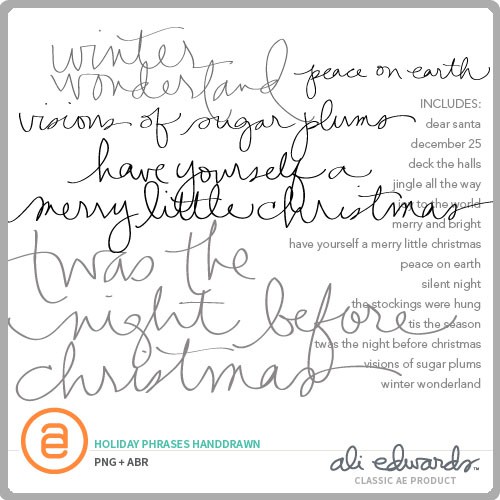 winter
wonderland
peace on earth
visions of sugar plums
have yourself a
merry little christmas
twas the
night before
christmas
INCLUDES:
dear santa
december 25
deck the halls
jingle all the way
joy to the world
merry and bright
have yourself a merry little christmas
peace on earth
silent night
the stockings were hung
tis the season
twas the night before christmas
visions of sugar plums
winter wonderland
ae
HOLIDAY PHRASES HANDDRAWN
PNG + ABR
ali edwards™
CLASSIC AE PRODUCT